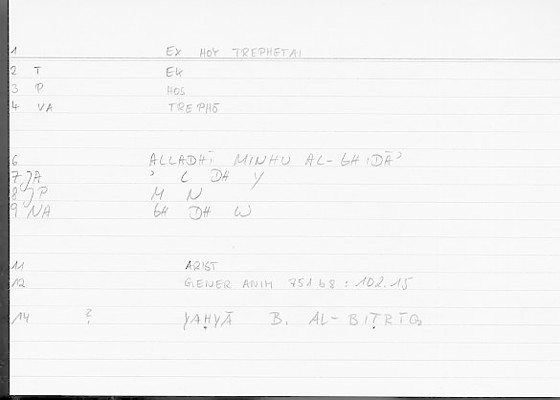 1 EX HOY TREPHETAI
2 T EK
3 P HOS
4 VA TREPHŌ
6 ALLADHĪ MINHU AL-GHIDĀʾ
7 JA ʾ L DH Y
8 JP M N
9 NA GH DH W
11 ARIST
12 GENER ANIM 751 b 8 : 102.15
14 ? YAḤYĀ B. AL-BIṬRĪQ